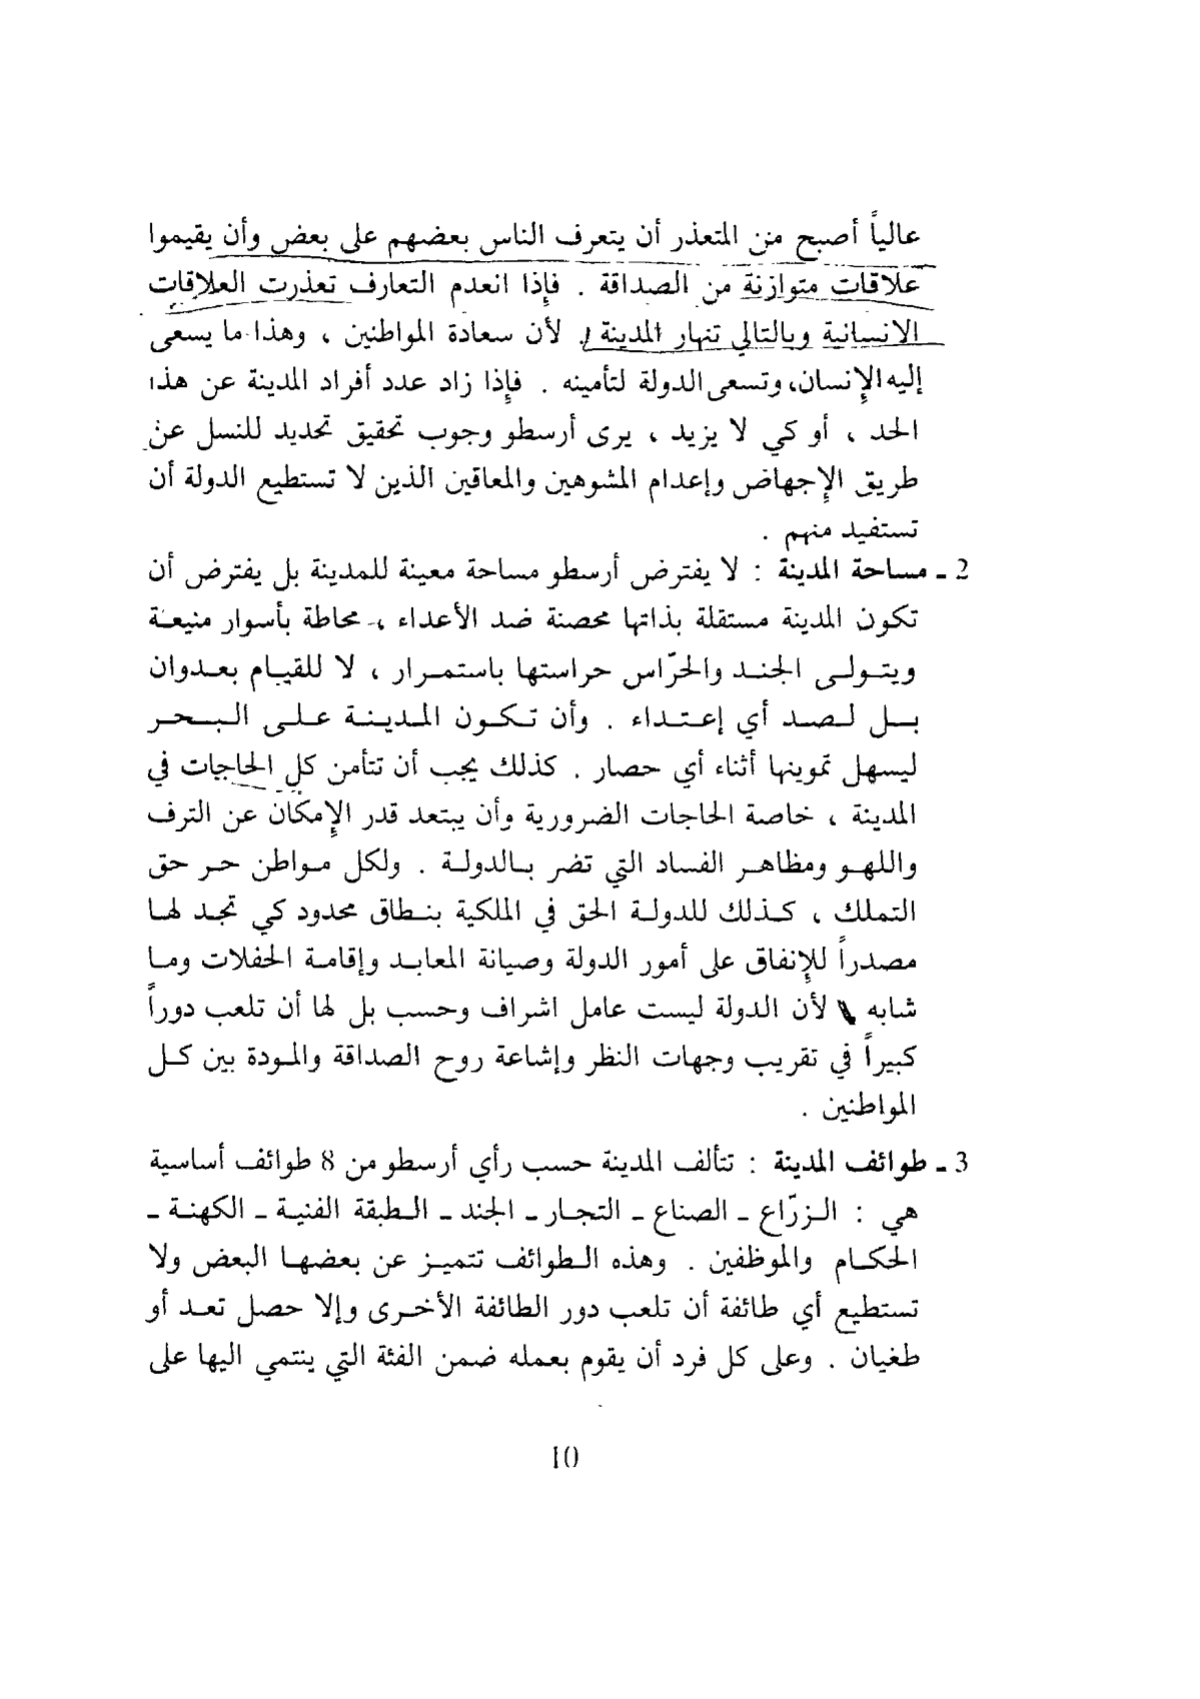 عالياً أصبح من المتعذر أن يتعرف الناس بعضهم على بعض وأن يقيموا
علاقات متوازنة من الصداقة . فإذا انعدم التعارف تعذرت العلاقات
الانسانية وبالتالي تنهار المدينة . لأن سعادة المواطنين ، وهذا ما يسعى
إليه الإنسان، وتسعى الدولة لتأمينه . فإذا زاد عدد أفراد المدينة عن هذا
الحد ، أو كي لا يزيد ، يرى أرسطو وجوب تحقيق تحديد للنسل عن
طريق الإجهاض وإعدام المشوهين والمعاقين الذين لا تستطيع الدولة أن
تستفيد منهم .
2 ـ مساحة المدينة : لا يفترض أرسطو مساحة معينة للمدينة بل يفترض أن
تكون المدينة مستقلة بذاتها محصنة ضد الأعداء ، محاطة بأسوار منيعة
ويتولى الجند والحرّاس حراستها باستمرار ، لا للقيام بعدوان
بل لصد أي إعتداء . وأن تكون المدينة على البحر
ليسهل تموينها أثناء أي حصار . كذلك يجب أن تتأمن كل الحاجات في
المدينة ، خاصة الحاجات الضرورية وأن يبتعد قدر الإمكان عن الترف
واللهو ومظاهر الفساد التي تضر بالدولة . ولكل مواطن حر حق
التملك ، كذلك للدولة الحق في الملكية بنطاق محدود كي تجد لها
مصدراً للإنفاق على أمور الدولة وصيانة المعابد وإقامة الحفلات وما
شابه لأن الدولة ليست عامل اشراف وحسب بل لها أن تلعب دوراً
كبيراً في تقريب وجهات النظر وإشاعة روح الصداقة والمودة بين كل
المواطنين .
3 ـ طوائف المدينة : تتألف المدينة حسب رأي أرسطو من 8 طوائف أساسية
هي : الزرّاع ـ الصناع ـ التجار ـ الجند ـ الطبقة الفنية ـ الكهنة ـ
الحكام والموظفين . وهذه الطوائف تتميز عن بعضها البعض ولا
تستطيع أي طائفة أن تلعب دور الطائفة الأخرى وإلا حصل تعد أو
طغيان . وعلى كل فرد أن يقوم بعمله ضمن الفئة التي ينتمي اليها على
10